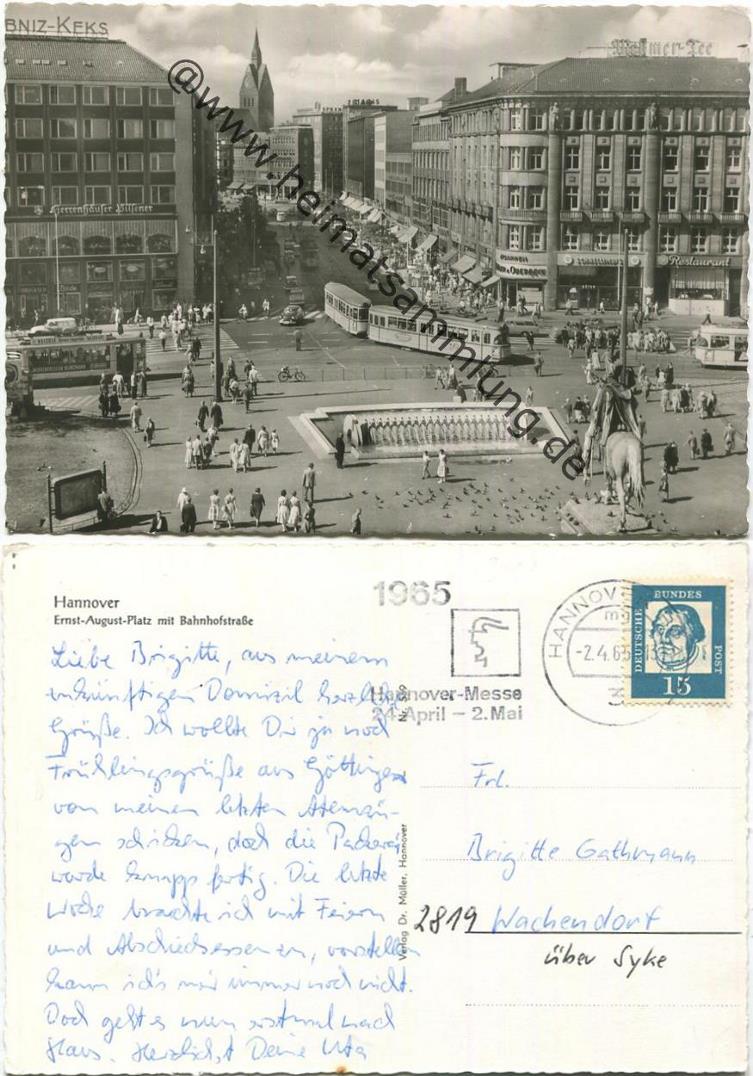 BNIZ-KEKS
Meßmer-Tee
Herrenhäuser Pilsener
Restaurant
@www.heimatsammlung.de
Hannover
Ernst-August-Platz mit Bahnhofstraße
1965
Hannover-Messe
24. April – 2. Mai
HANNOVER
mg
-2.4.65-13
3
DEUTSCHE BUNDESPOST
15
Liebe Brigitte, aus meinem
zukünftigen Domizil herzliche
Grüße. Ich wollte Dir ja noch
Frühlingsgrüße aus Göttingen
von meinen letzten Atemzü-
gen schicken, doch die Packerei
wurde knapp fertig. Die letzte
Woche brachte ich mit Feiern
und Abschiedsessen zu, vorstellen
kann ich's mir immer noch nicht.
Doch geht es nun erstmal nach
Haus. Herzlichst Deine Uta
Verlag Dr. Müller, Hannover
Frl.
Brigitte Gathmann
2819 Wachendorf
über Syke